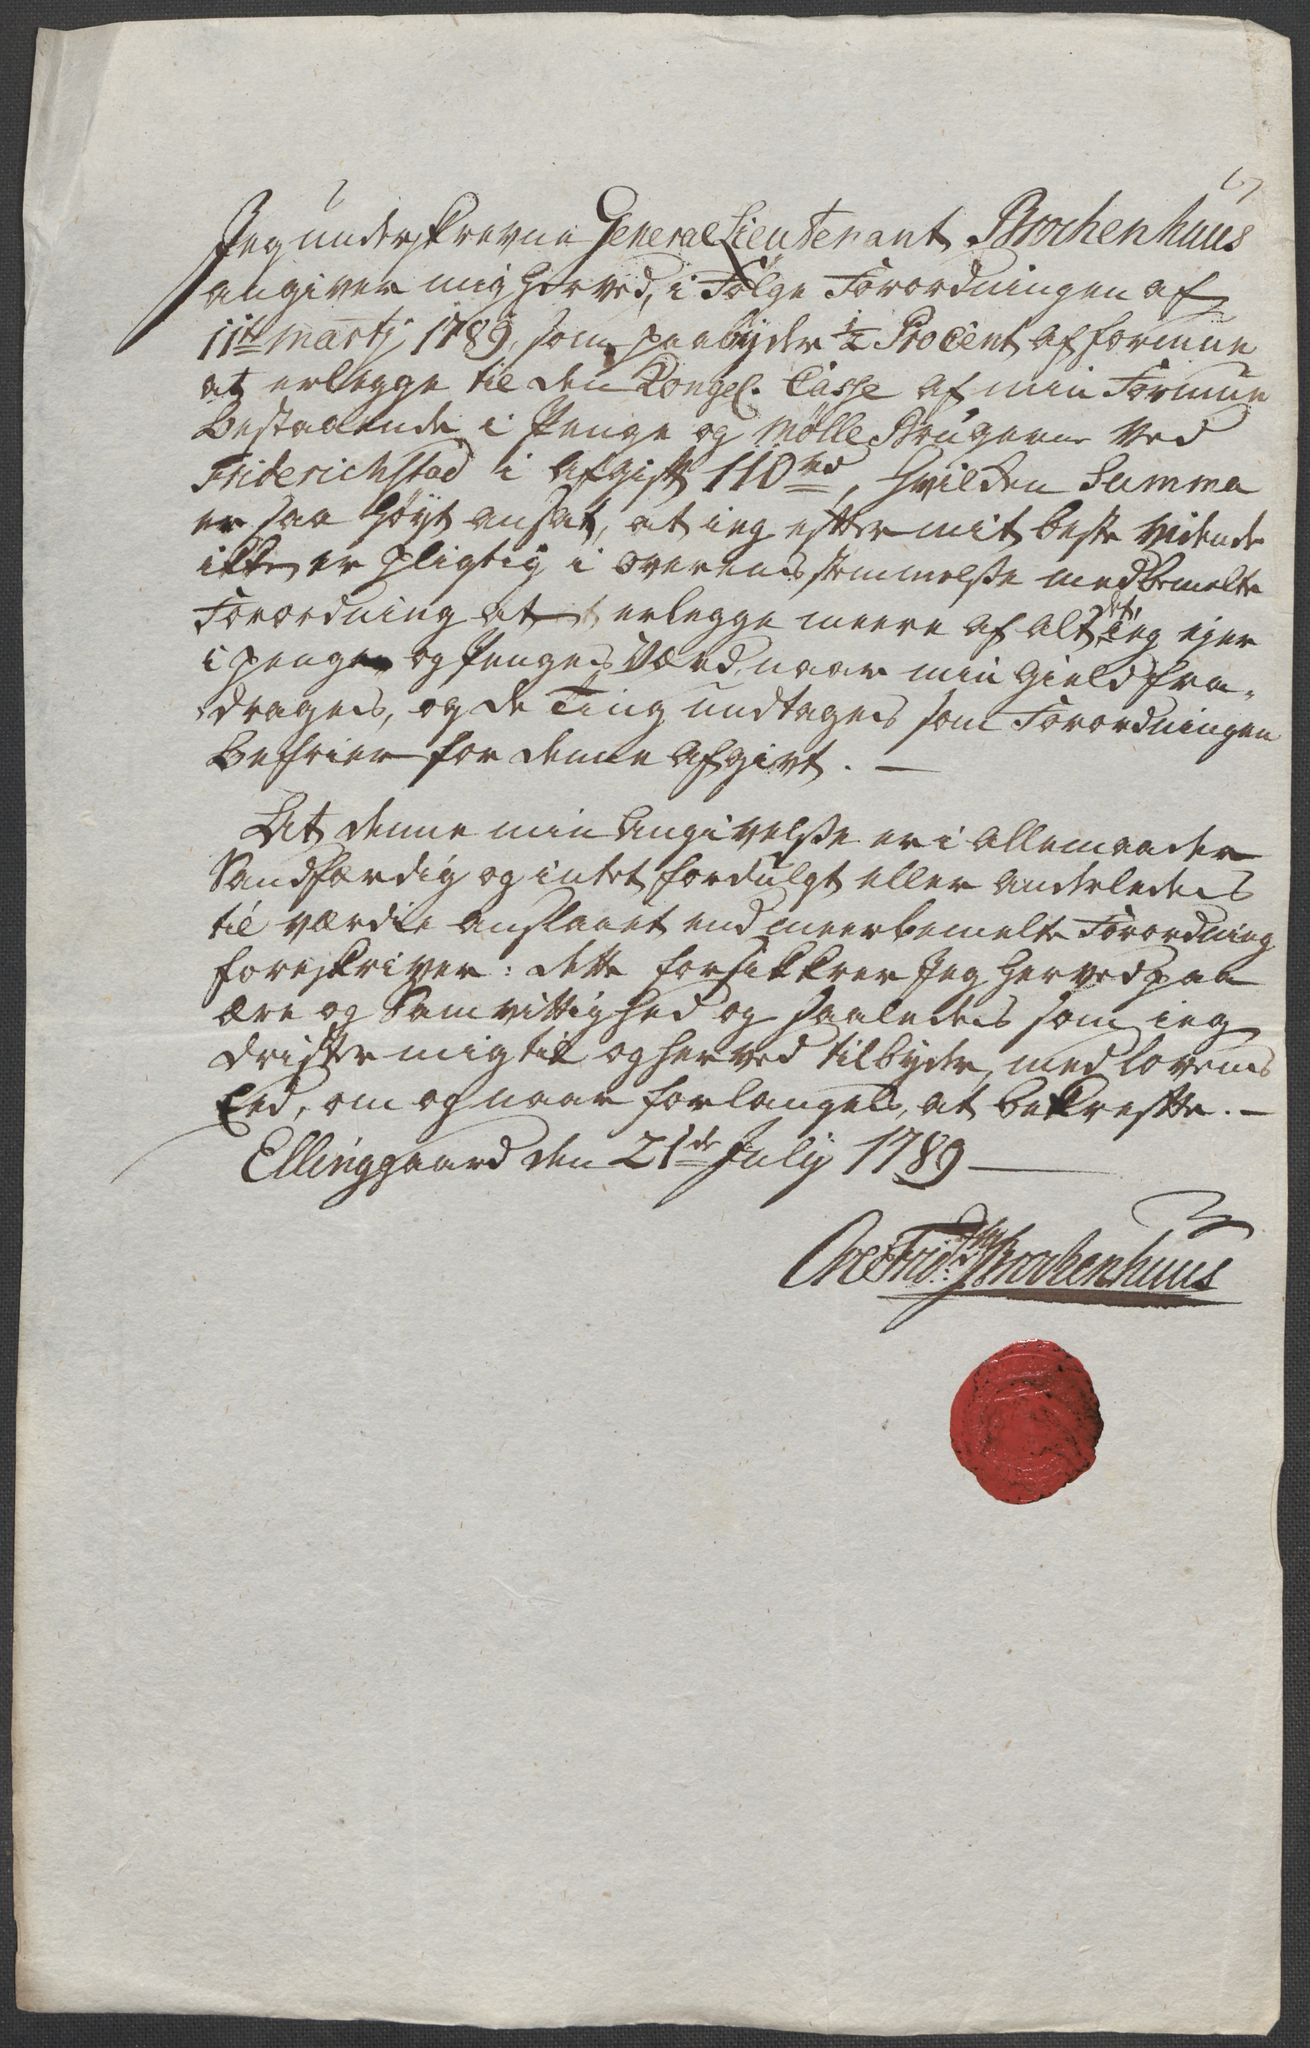 Jeg underskrevne General Lieutenant Brockenhuus
angiver mig herved, i Følge Forordningen af
11te Martij 1789, som paabyder ½ Procent af formue
at erlegge til den Kongel. Casse af min Formue
bestaaende i Penge og Mølle Brugerne ved
Friderichstad i Afgift 110 rd, hvilken Summa
er saa høyt ansat, at ieg efter mit beste vidende
ikke er pligtig i overensstemmelse med bemelte
Forordning at erlegge meere af alt det, ieg ejer
i penge og Penges Værd, naar min gield fra-
drages, og de Ting undtages som Forordningen
befrier for denne Afgivt. —
At denne min Angivelse er i allemaader
Sandfærdig og intet fordulgt eller anderledes
til værdie anslaaet end meerbemelte Forordning
foreskriver: dette forsikkrer Jeg herved paa
ære og Samvittighed og saaledes som ieg
drister mig til og herved tilbyder, med lovens
Eed, om og naar forlanges, at bekrefte. —
Ellinggaard den 21de July 1789 —
Ove Frid: Brockenhuus